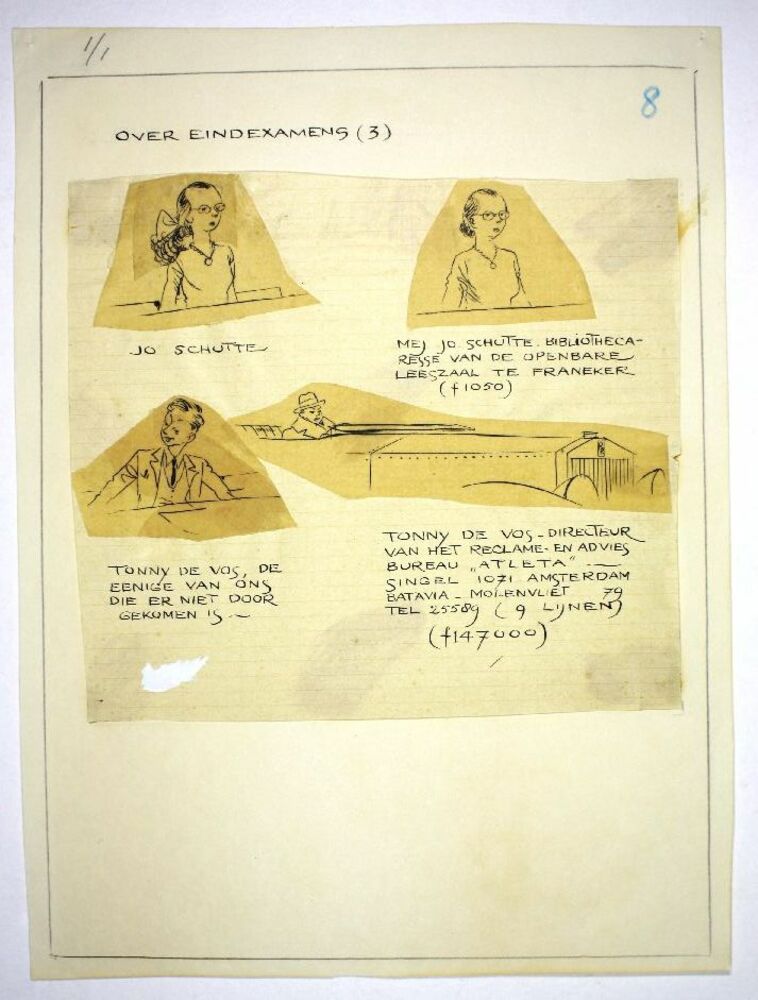 1/1
8
OVER EINDEXAMENS (3)
JO SCHUTTE
MEJ JO. SCHUTTE. BIBLIOTHECA-
RESSE VAN DE OPENBARE
LEESZAAL TE FRANEKER
(f1050)
TONNY DE VOS, DE
EENIGE VAN ONS
DIE ER NIET DOOR
GEKOMEN IS
TONNY DE VOS - DIRECTEUR
VAN HET RECLAME- EN ADVIES
BUREAU „ATLETA"
SINGEL 1071 AMSTERDAM
BATAVIA - MOLENVLIET 79
TEL 25589 ( 9 LIJNEN)
(f147000)